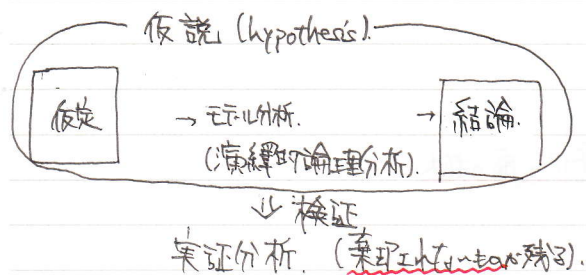 仮説 (hypothesis).
仮定 → モデル分析. → 結論.
(演繹的論理分析).
⇓ 検証
実証分析. (棄却されないものが残る).